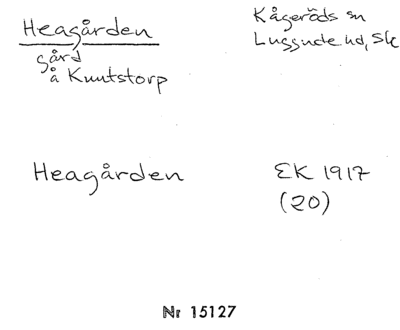 Heagården
gård
å Knutstorp
Kågeröds sn
Luggude hd, Sk
Heagården
EK 1917
(20)
Nr 15127